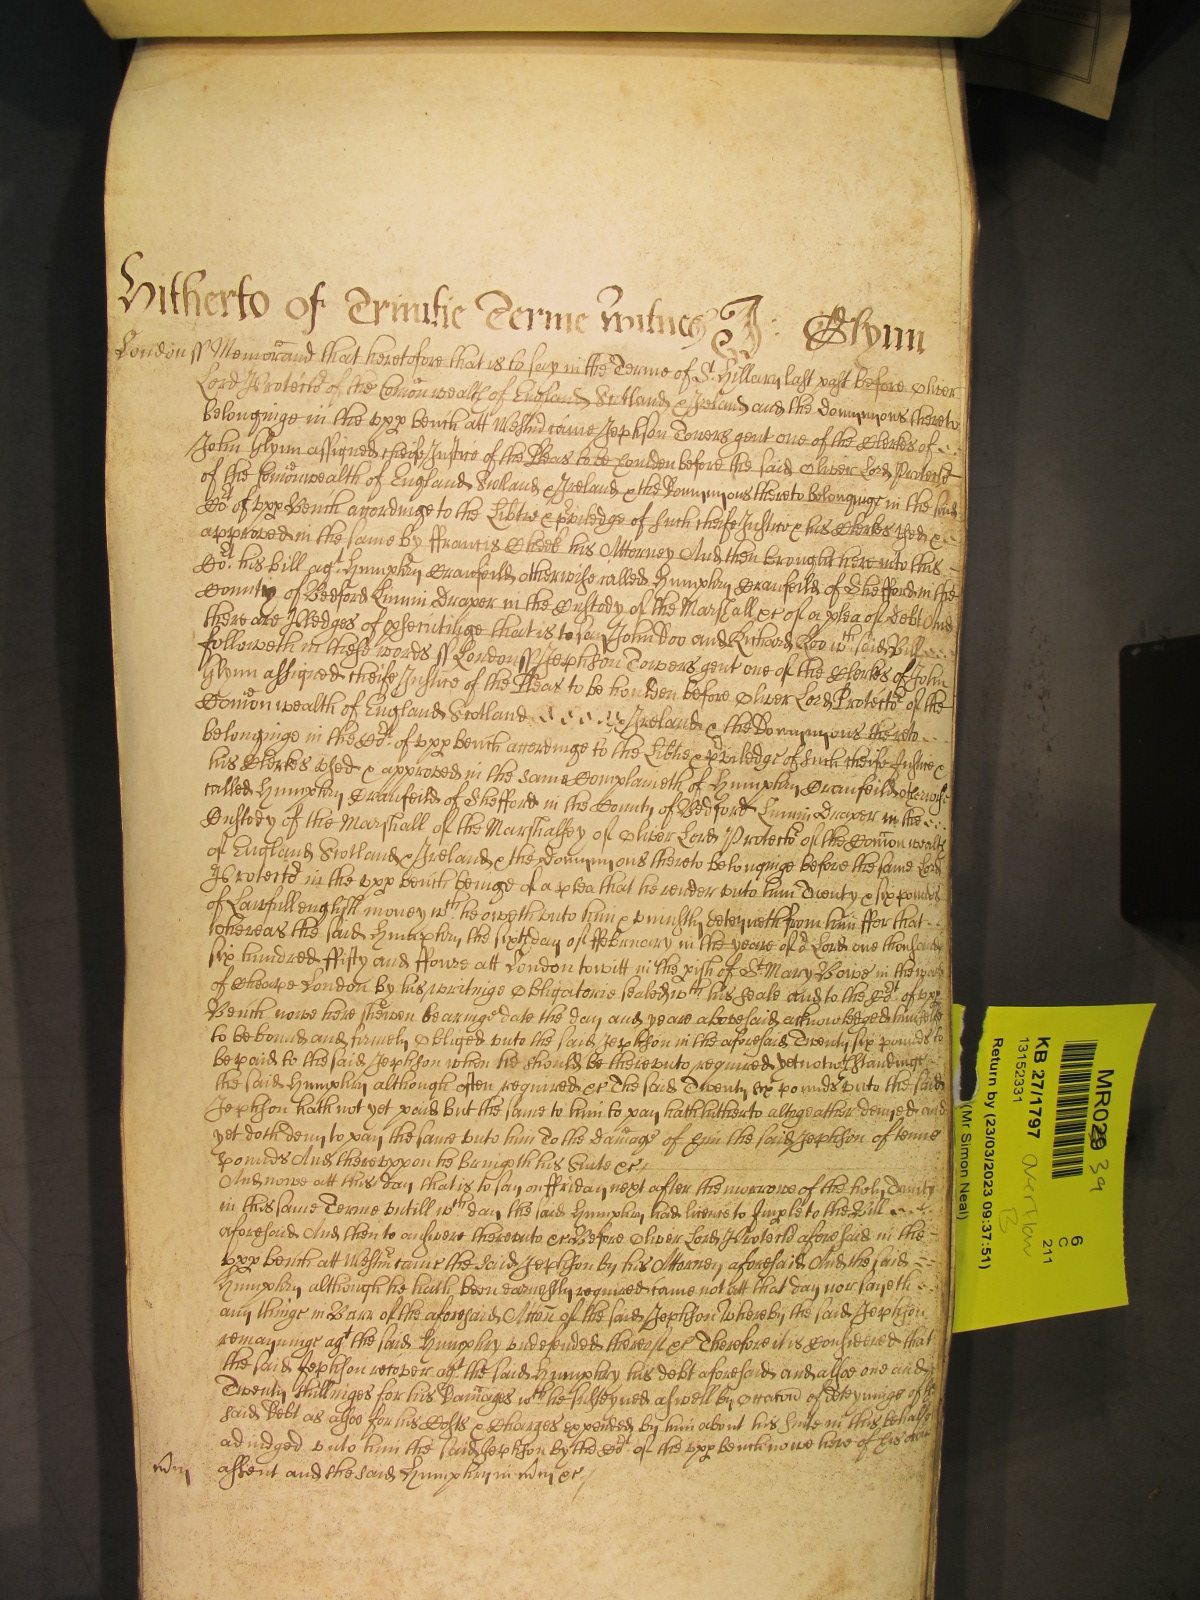 Hitherto of Trinitie Terme witnes J: Glynn
London ss Memorand that heretofore that is to say in the Terme of St. Hillary last past before Oliver
Lord Protector of the Comonwealth of England Scotland & Ireland and the Dominions thereto
belonginge in the upp bench att Westm came Jephson Towers gent one of the Clerkes of
John Glynn assigned cheife Justice of the Pleas to be houlden before the said Oliver Lord Protector
of the Comonwealth of England Scotland & Ireland & the Dominions thereto belonginge in the said
Cot. of upp Bench accordinge to the Libtie & priviledge of such cheife Justice & his Clerkes used &
approved in the same by ffrancis his Attorney And then brought here into this
Cot. his bill agt. Humphry Cranfeild otherwise called Humphry Cranfeild of Shefford in the
County of Bedford Linnin Draper in the Custody of the Marshall &c of a plea of Debt And
there are Pledges of prsecutinge that is to say John Doo and Richard Roo wch. said Bill
followeth in these words ss London ss Jephson Towers gent one of the Clerkes of John
Glynn assigned cheife Justice of the Pleas to be houlden before Oliver Lord Protector of the
Comonwealth of England Scotland & Ireland & the Dominions thereto
belonginge in the Cot. of upp bench accordinge to the Libtie & priviledge of such cheife Justice &
his Clerkes used & approved in the same Complaineth of Humphry Cranfeild otherwise
called Humphry Cranfeild of Shefford in the County of Bedford Linnin Draper in the
Custody of the Marshall of the Marshalsey of Oliver Lord Protector of the Comonwealth
of England Scotland & Ireland & the Dominions thereto belonginge before the same Lord
Protector in the upp bench beinge of a plea that he render unto him Twenty & six pounds
of Lawfull english money wch. he oweth unto him & uniustly deteyneth from him ffor that
whereas the said Humphry the sixth day of ffebruary in the yeare of or Lord one thousand
six hundred ffifty and ffoure att London to witt in the pish of St. Mary Bowe in the ward
of Cheape London by his writinge Obligatorie sealed wth. his seale and to the Cot. of upp
Bench nowe here shewen bearinge date the day and yeare abovesaid acknowledged himselfe
to be bound and firmely obliged unto the said Jephson in the aforesaid Twenty six pounds to
be paid to the said Jephson when he should be thereunto required yet notwthstandinge
the said Humphry although often required &c The said Twenty six pounds unto the said
Jephson hath not yet paid but the same to him to pay hath hitherto altogeather denied and
yet doth deny to pay the same unto him To the damage of him the said Jephson of tenne
pounds And thereuppon he bringeth his suite &c
And nowe att this day that is to say on ffriday next after the morrowe of the holy Trinity
in this same Terme untill wch. day the said Humphry had licence to Imple to the Bill
aforesaid And then to answere thereunto &c Before Oliver Lord Protector aforesaid in the
upp bench att Westm came the said Jephson by his Attorney aforesaid And the said
Humphry although he hath been earnestly required came not att that day nor sayeth
any thinge in Barr of the aforesaid Action of the said Jephson whereby the said Jephson
remayninge agt the said Humphry undefended thereof &c Therefore it is Considered that
the said Jephson recover agt the said Humphry his debt aforesaid and alsoe one and
Twenty shillinges for his Damages wch he susteyned aswell by occation of deteyninge of the
said Debt as alsoe for his Costs & Charges expended by him about his suite in this behalfe
adiudged unto him the said Jephson by the Cot. of the upp bench nowe here of his owne
mia assent and the said Humphry in mia &c
MR029 39
KB 27/1797 overflow B
13152331
6
C
211
Return by (23/03/2023 09:37:51)
(Mr Simon Neal)